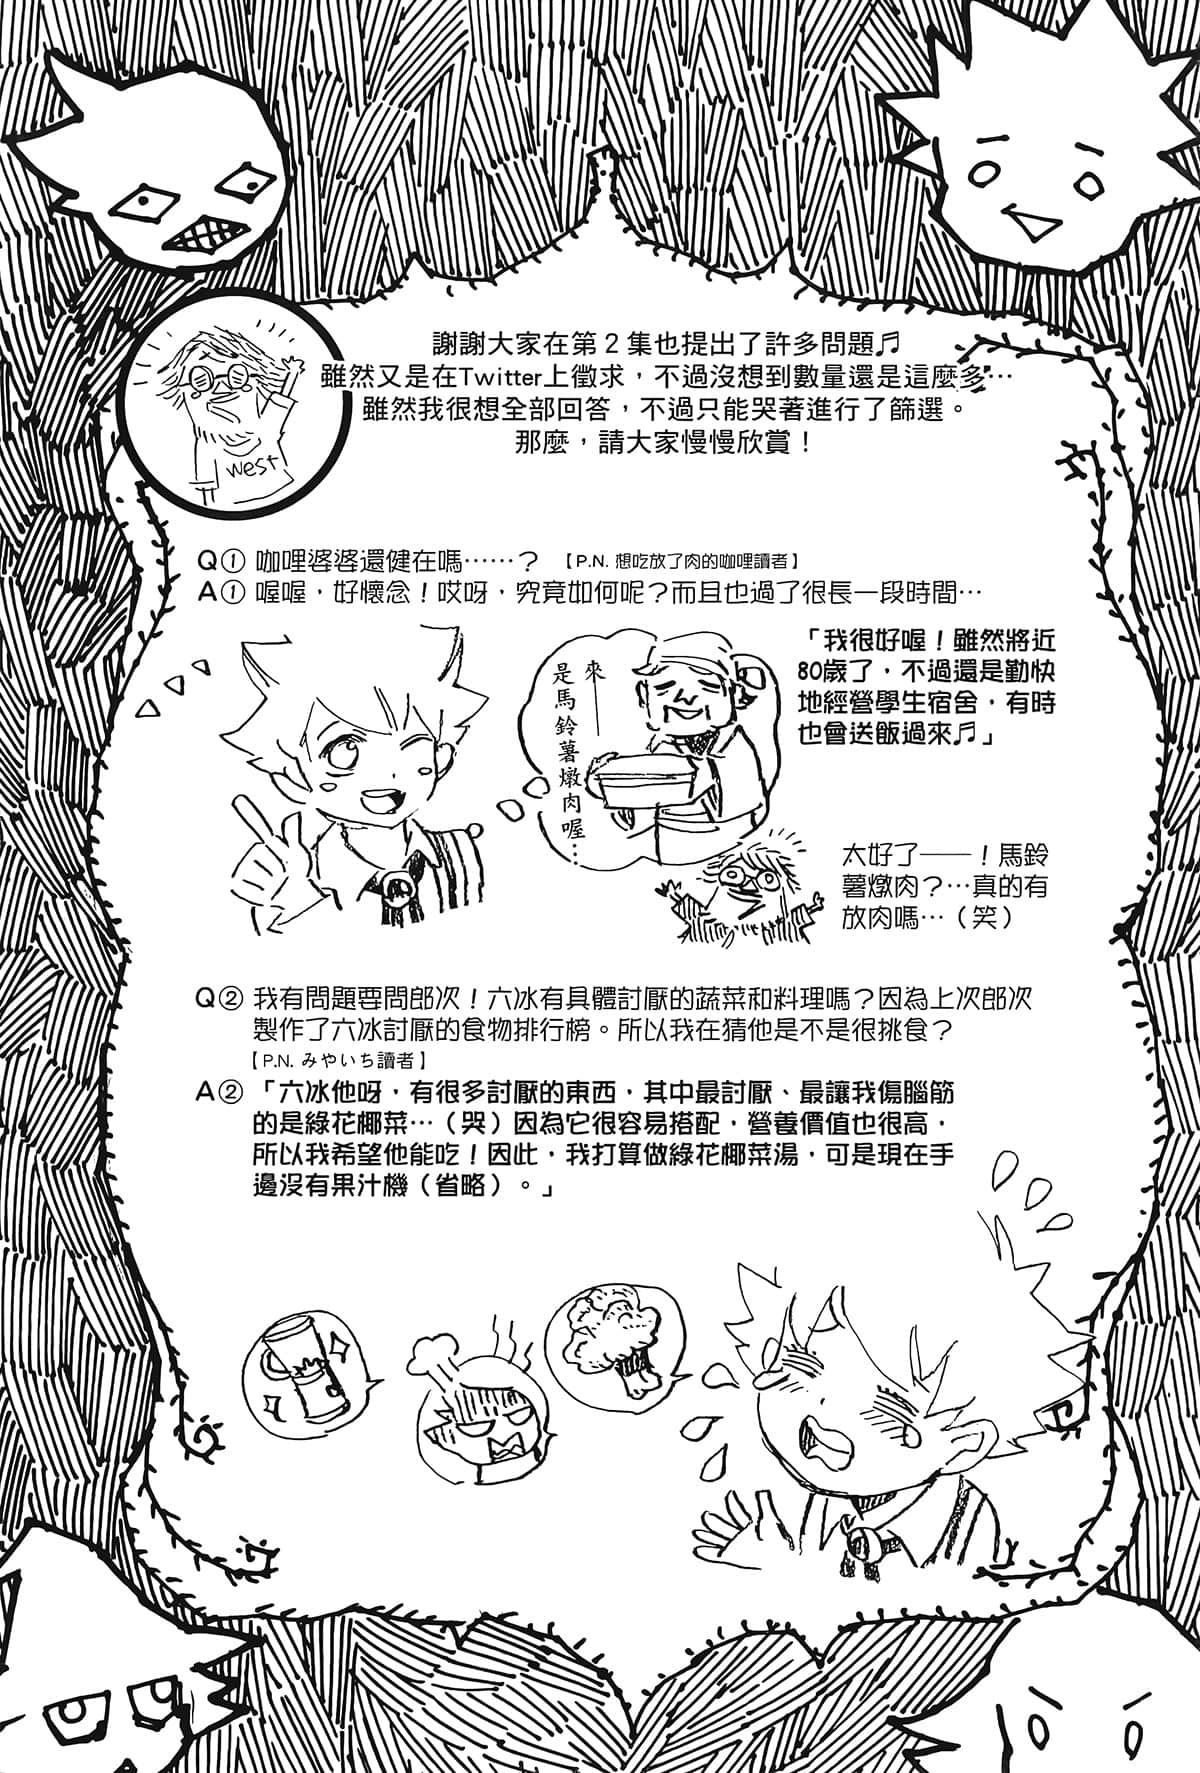 謝謝大家在第2集也提出了許多問題♬
雖然又是在Twitter上徵求，不過沒想到數量還是這麼多…
雖然我很想全部回答，不過只能哭著進行了篩選。
那麼，請大家慢慢欣賞！
west
Q① 咖哩婆婆還健在嗎……？ 【P.N. 想吃放了肉的咖哩讀者】
A① 喔喔，好懷念！哎呀，究竟如何呢？而且也過了很長一段時間…
「我很好喔！雖然將近
80歲了，不過還是勤快
地經營學生宿舍，有時
也會送飯過來♬」
來——
是馬鈴薯燉肉喔…
太好了——！馬鈴
薯燉肉？…真的有
放肉嗎…（笑）
Q② 我有問題要問郎次！六冰有具體討厭的蔬菜和料理嗎？因為上次郎次
製作了六冰討厭的食物排行榜。所以我在猜他是不是很挑食？
【P.N. みやいち讀者】
A② 「六冰他呀，有很多討厭的東西，其中最討厭、最讓我傷腦筋
的是綠花椰菜…（哭）因為它很容易搭配，營養價值也很高，
所以我希望他能吃！因此，我打算做綠花椰菜湯，可是現在手
邊沒有果汁機（省略）。」